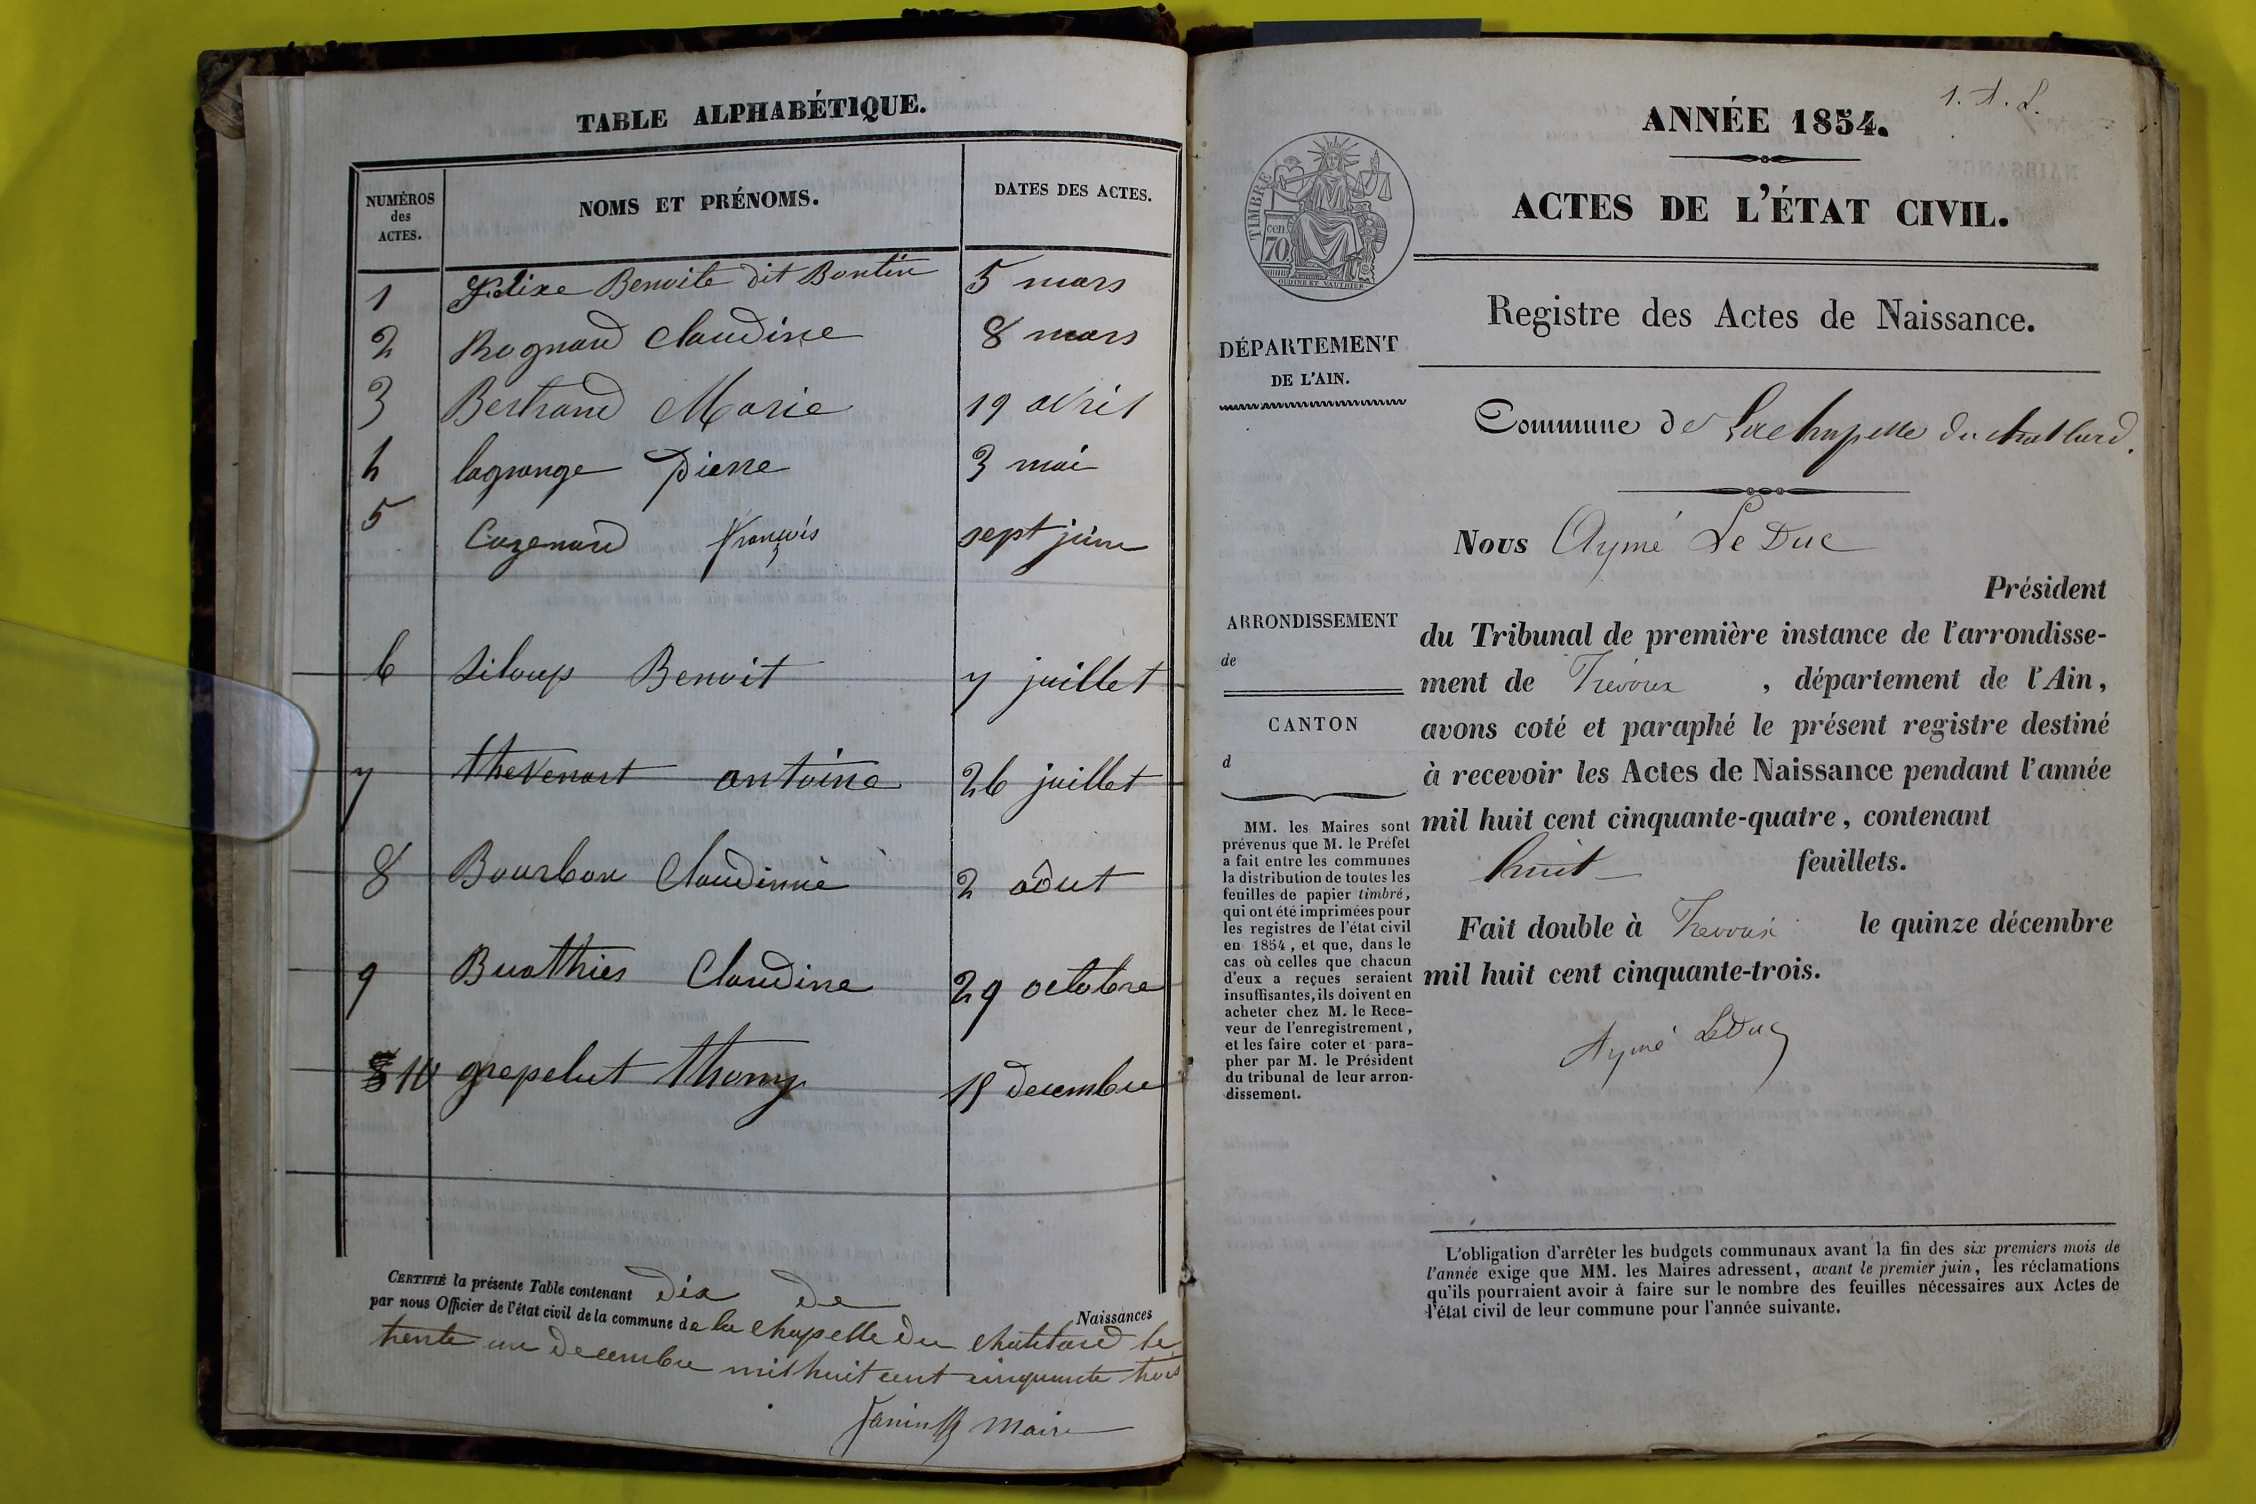 TABLE ALPHABÉTIQUE.
NUMÉROS des ACTES. NOMS ET PRÉNOMS. DATES DES ACTES.
1 Felixe Benoite dit Bontin 5 mars
2 Rognard Claudine 8 mars
3 Bertrand Marie 19 avril
4 lagrange Pierre 3 mai
5 Cazenard François sept juin
6 Siloup Benoit 7 juillet
7 thevenart antoine 26 juillet
8 Bourbon Claudinne 2 aôut
9 Buathier Claudine 29 octobre
10 grepelut thomy decembre
CERTIFIÉ la présente Table contenant dix de Naissances
par nous Officier de l'état civil de la commune de la chapelle du chatelard le
trente un decembre mil huit cent cinquante trois
Janin maire
1. A. L.
ANNÉE 1854.
ACTES DE L'ÉTAT CIVIL.
TIMBRE
70 cen
OUDINÉ ET VAUTHIER
Registre des Actes de Naissance.
DÉPARTEMENT
DE L'AIN.
Commune de Lachapelle du chatelard.
Nous Aymé Le Duc
Président
ARRONDISSEMENT
de
CANTON
d
du Tribunal de première instance de l'arrondisse-
ment de Trévoux , département de l'Ain,
avons coté et paraphé le présent registre destiné
à recevoir les Actes de Naissance pendant l'année
mil huit cent cinquante-quatre, contenant
huit feuillets.
Fait double à Trevoux le quinze décembre
mil huit cent cinquante-trois.
Aymé Le Duc
MM. les Maires sont
prévenus que M. le Préfet
a fait entre les communes
la distribution de toutes les
feuilles de papier timbré,
qui ont été imprimées pour
les registres de l'état civil
en 1854, et que, dans le
cas où celles que chacun
d'eux a reçues seraient
insuffisantes, ils doivent en
acheter chez M. le Rece-
veur de l'enregistrement,
et les faire coter et para-
pher par M. le Président
du tribunal de leur arron-
dissement.
L'obligation d'arrêter les budgets communaux avant la fin des six premiers mois de
l'année exige que MM. les Maires adressent, avant le premier juin, les réclamations
qu'ils pourraient avoir à faire sur le nombre des feuilles nécessaires aux Actes de
l'état civil de leur commune pour l'année suivante.